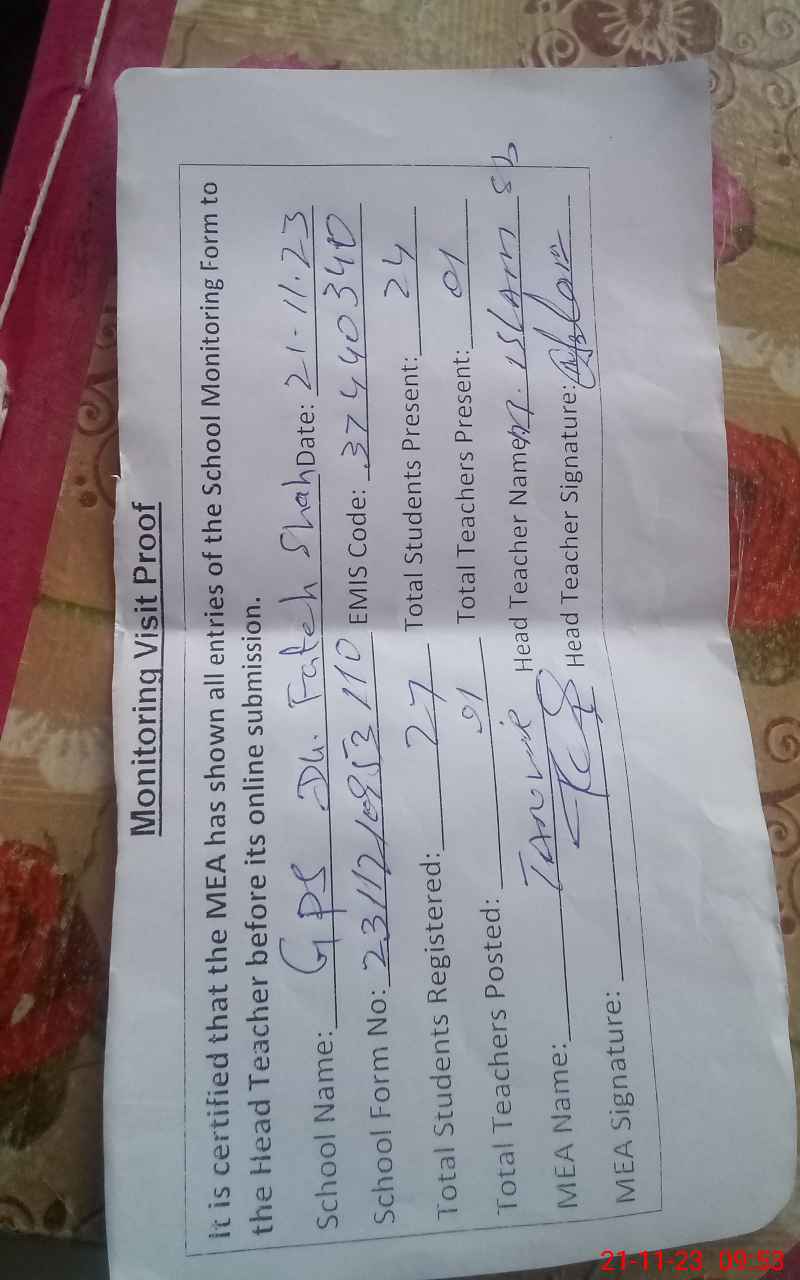 Monitoring Visit Proof
It is certified that the MEA has shown all entries of the School Monitoring Form to
the Head Teacher before its online submission.
School Name: GPS Dh. Fateh Shah Date: 21-11-23
School Form No: 23112110953110 EMIS Code: 37440340
Total Students Registered: 27 Total Students Present: 24
Total Teachers Posted: 01 Total Teachers Present: 01
MEA Name: Head Teacher Name: M. ISLAM
MEA Signature: Head Teacher Signature:
21-11-23 09:53